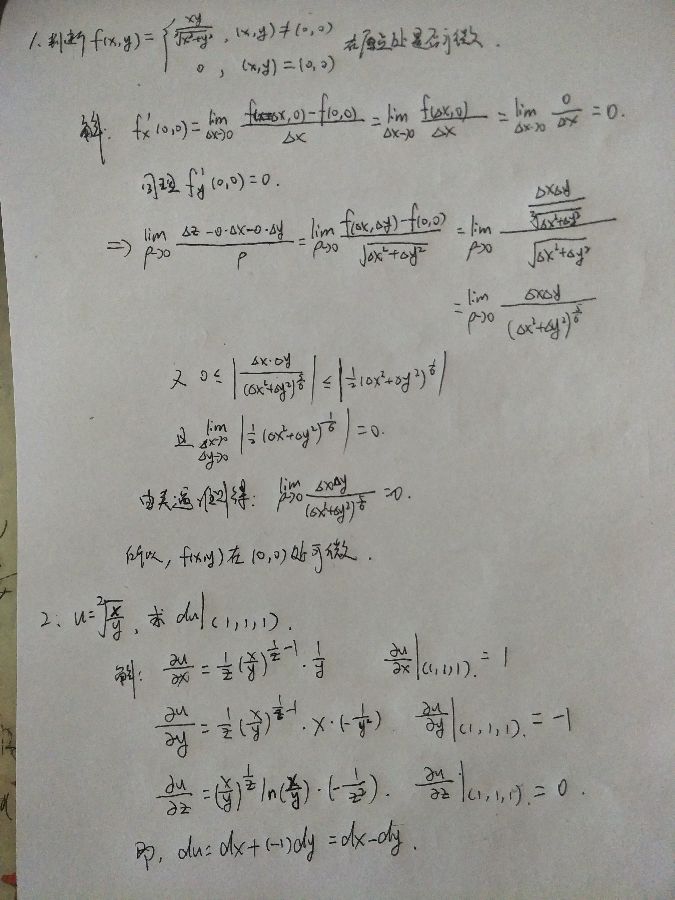 1. 判断 f(x,y) = { xy/∛(x²+y²), (x,y)≠(0,0)
0, (x,y)=(0,0) 在原点处是否可微.
解: f'x(0,0) = lim Δx→0 (f(0+Δx,0)-f(0,0))/Δx = lim Δx→0 f(Δx,0)/Δx = lim Δx→0 0/Δx = 0.
同理 f'y(0,0)=0.
⇒ lim ρ→0 (Δz-0·Δx-0·Δy)/ρ = lim ρ→0 (f(Δx,Δy)-f(0,0))/√(Δx²+Δy²) = lim ρ→0 (ΔxΔy/∛(Δx²+Δy²))/√(Δx²+Δy²)
= lim ρ→0 ΔxΔy/(Δx²+Δy²)^(5/6)
又 0≤ |Δx·Δy/(Δx²+Δy²)^(5/6)| ≤ |1/2(Δx²+Δy²)^(1/6)|
且 lim Δx→0 Δy→0 |1/2(Δx²+Δy²)^(1/6)| = 0.
由夹逼准则得: lim ρ→0 ΔxΔy/(Δx²+Δy²)^(5/6) = 0.
所以, f(x,y)在(0,0)处可微.
2. u=ᶻ√(x/y), 求 du|(1,1,1).
解: ∂u/∂x = 1/z (x/y)^(1/z-1) · 1/y ∂u/∂x|(1,1,1). = 1
∂u/∂y = 1/z (x/y)^(1/z-1) · x·(-1/y²) ∂u/∂y|(1,1,1). = -1
∂u/∂z = (x/y)^(1/z) ln(x/y)·(-1/z²). ∂u/∂z|(1,1,1). = 0.
即, du=dx+(-1)dy=dx-dy.